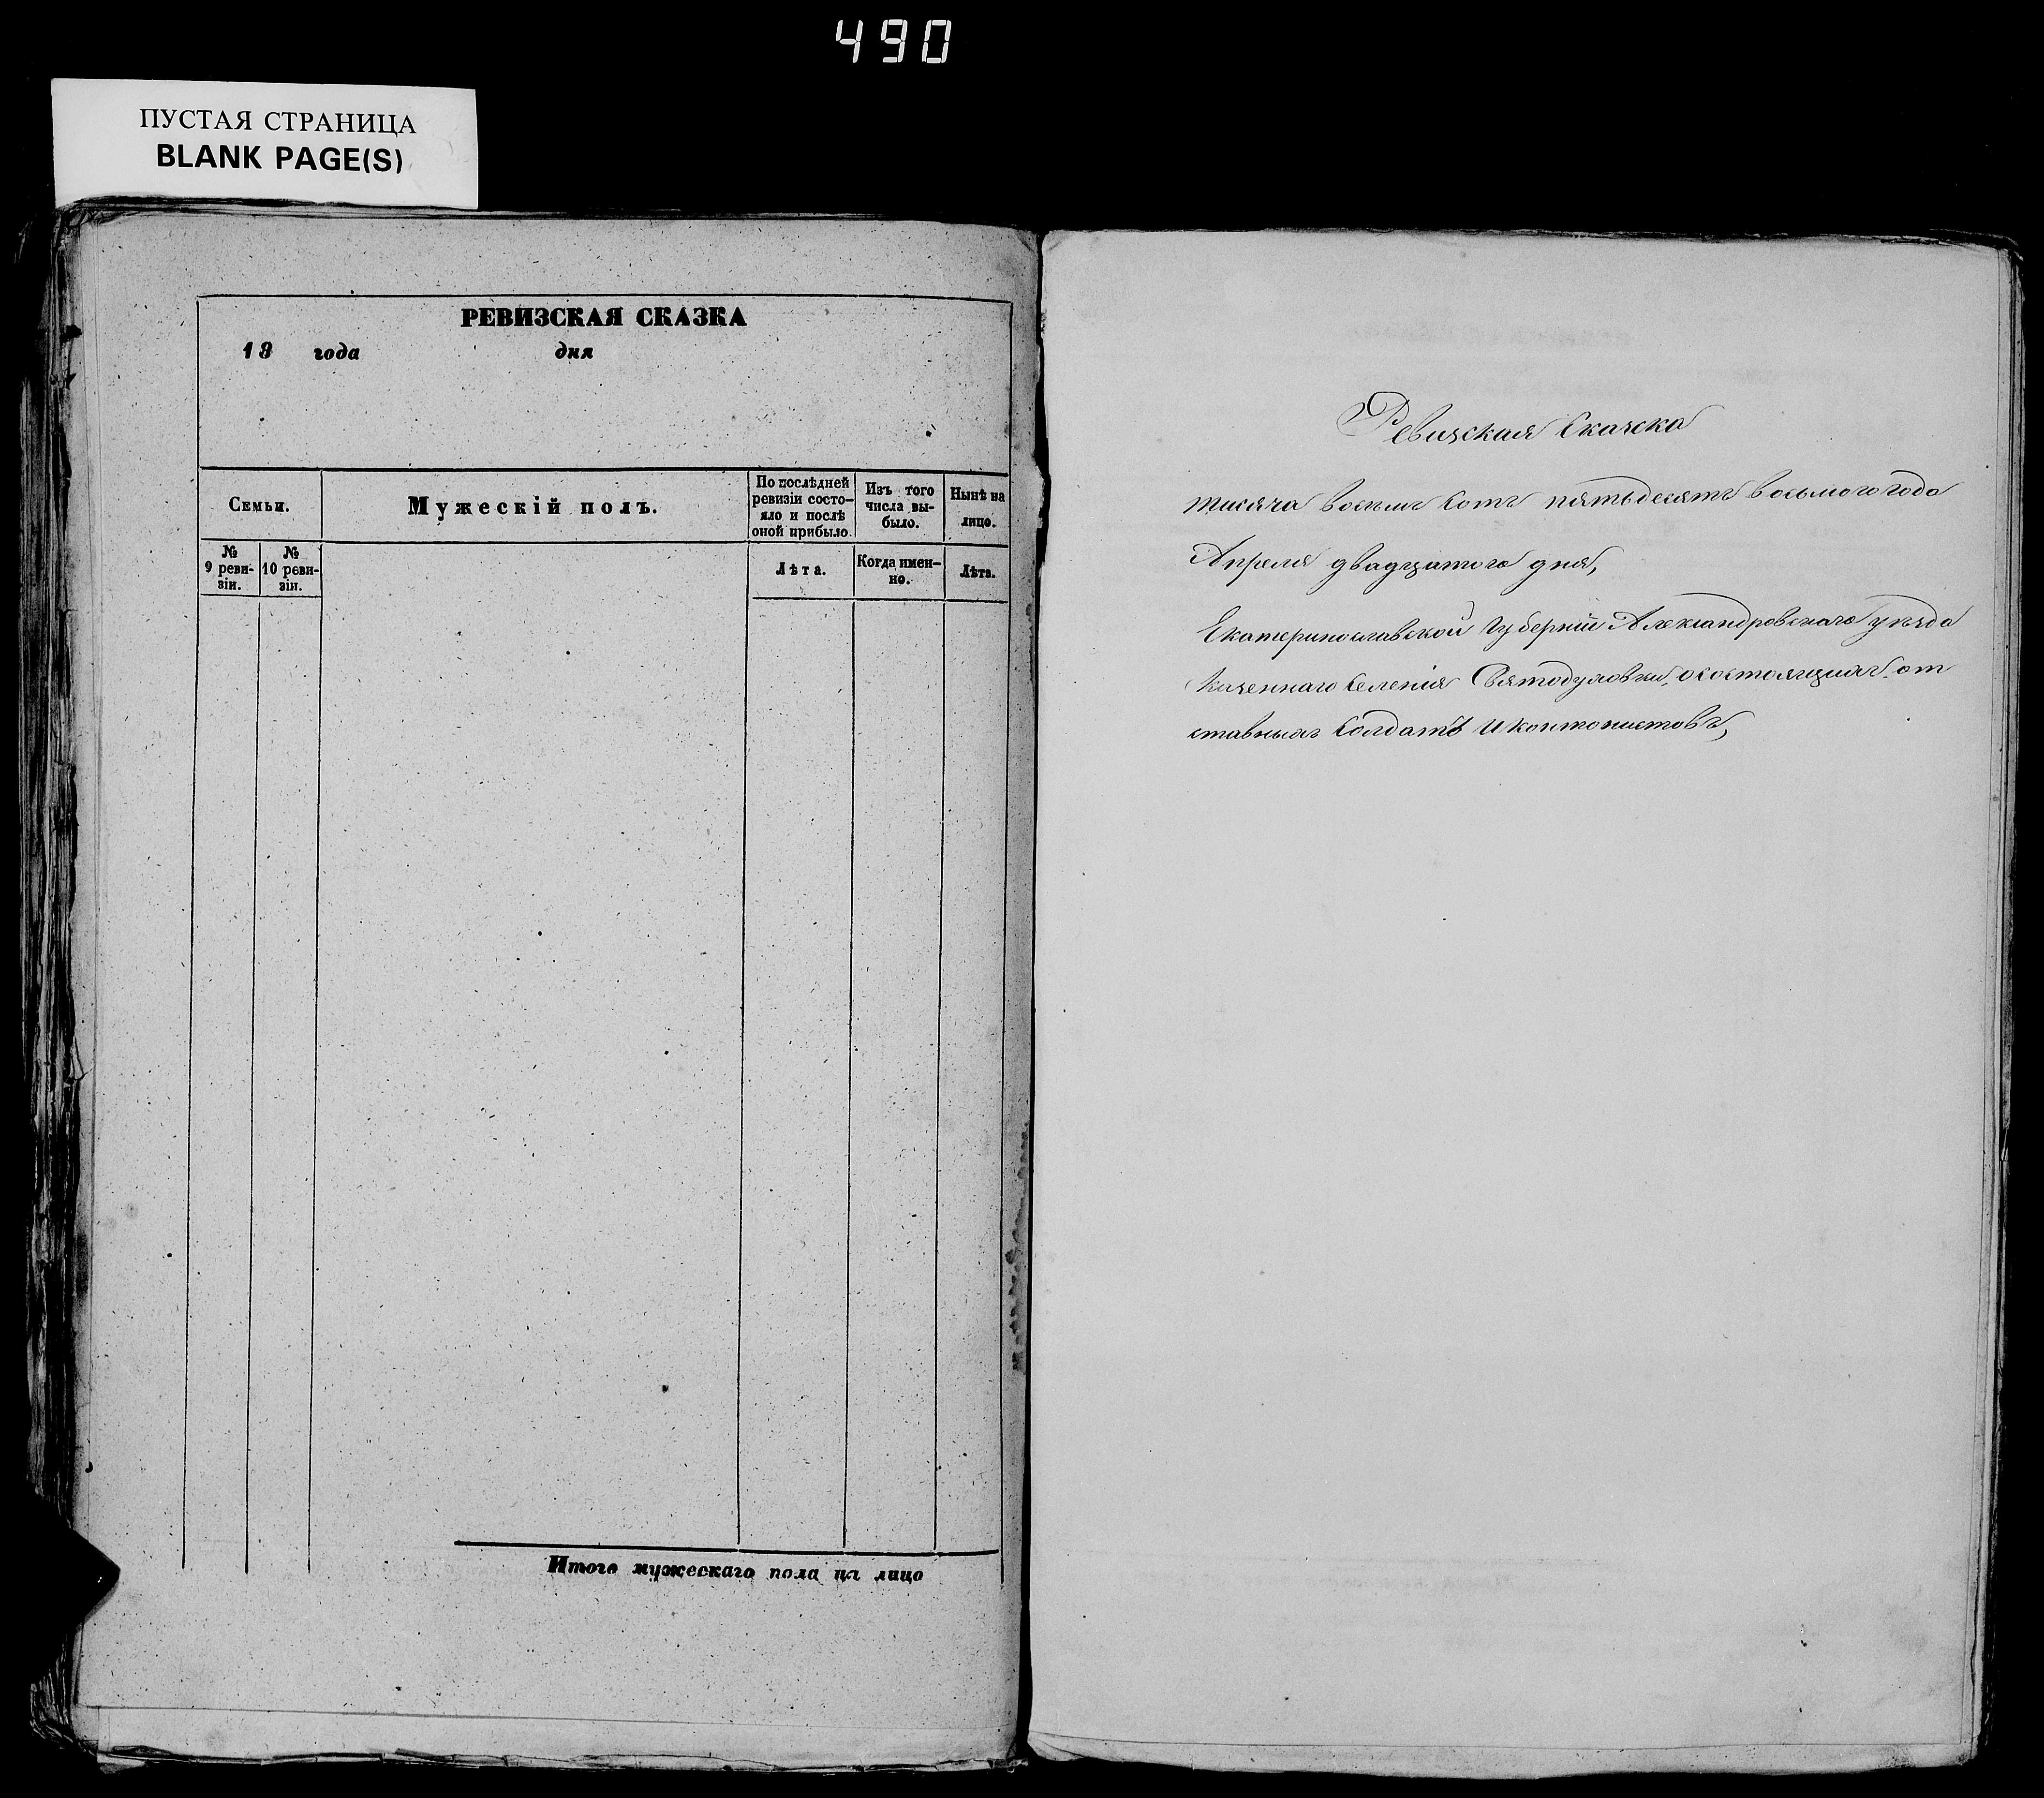 490
ПУСТАЯ СТРАНИЦА
BLANK PAGE(S)
РЕВИЗСКАЯ СКАЗКА
18 года дня
Семьи.
Мужескій полъ.
По послѣдней
ревизіи состо-
яло и послѣ
оной прибыло.
Изъ того
числа вы-
было.
Нынѣ на
лицо.
№
9 реви-
зіи.
№
10 реви-
зіи.
Лѣта.
Когда имен-
но.
Лѣта.
Итого мужескаго пола на лицо
Ревизская Сказска
тисяча восемь сотъ пятьдесятъ восьмого года
Апреля двадцатого дня,
Екатеринославской Губерніи Александровскаго уезда
Казеннаго Селенія Святодуховки, осостоящихъ от
ставныхъ Солдатъ и контонистовъ,